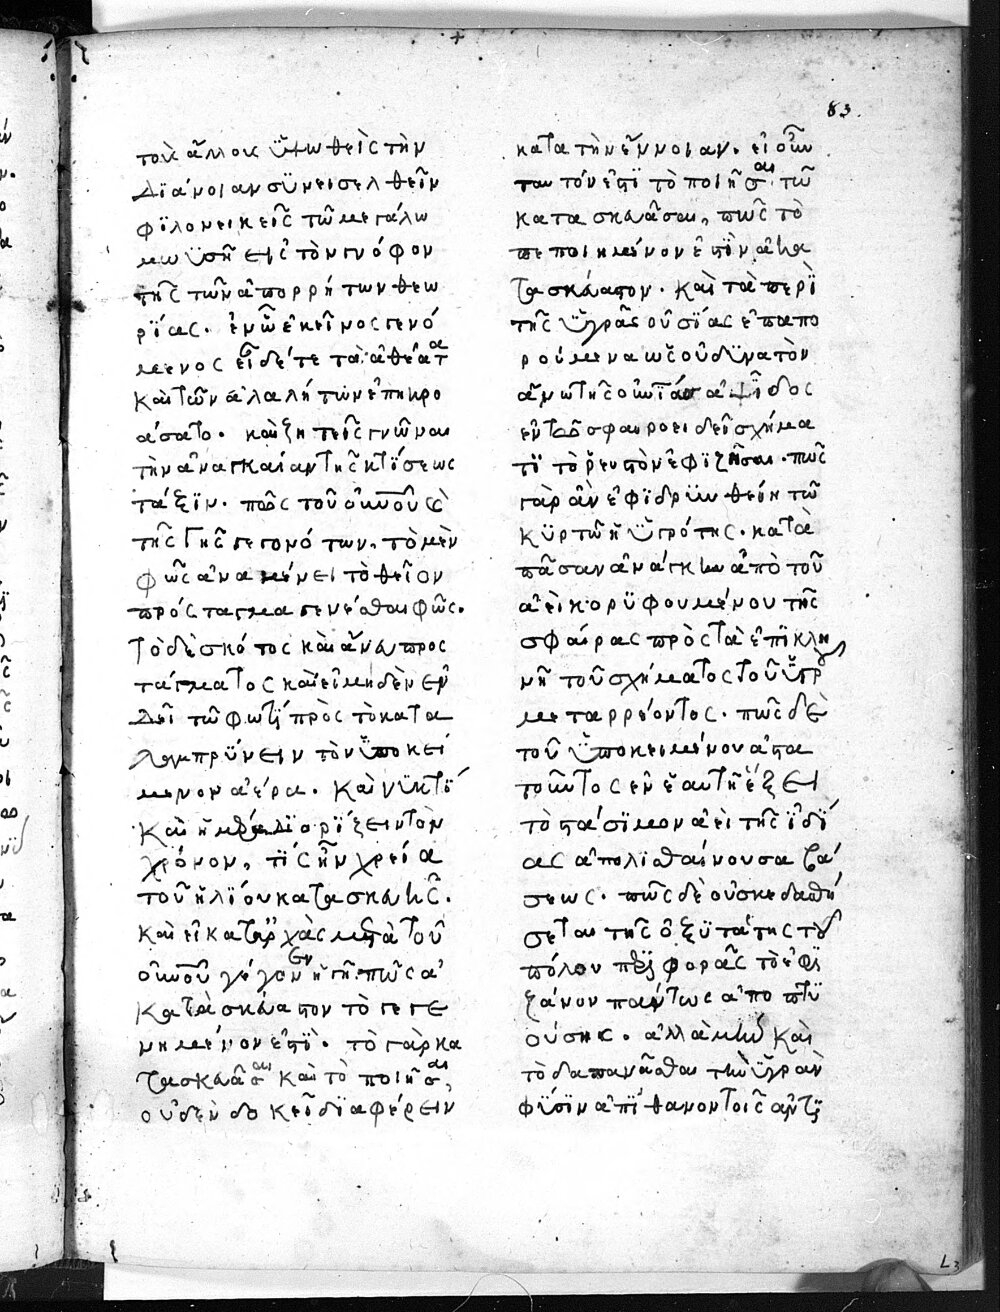 83.
τοῖς ἄλλοις ὑψωθεὶς τὴν
διάνοιαν συνεισελθεῖν
φιλονεικεῖς τῶ μεγάλω
μωϋσῆ εἰς τὸν γνόφον
τῆς τῶν ἀπορρήτων θεω
ρίας. ἐν ὧ ἐκεῖνος γενό
μενος εἶδέ τε τὰ ἀθέατα
καὶ τῶν ἀλαλήτων ἐπηκρο
άσατο. καὶ ζητεῖς γνῶναι
τὴν ἀναγκαίαν τῆς κτίσεως
τάξιν. πῶς τοῦ οὐνοῦ καὶ
τῆς γῆς γεγονότων, τὸ μὲν
φῶς ἀναμένει τὸ θεῖον
πρόσταγμα γενέσθαι φῶς.
τὸ δὲ σκότος καὶ ἄνευ προσ
τάγματος καὶ εἰ μηδὲν ἐν
δεῖ τῶ φωτὶ πρὸς τὸ κατα
λαμπρύνειν τὸν ὑποκεί
μενον ἀέρα. καὶ νυκτὶ
καὶ ἡμέρα διορίζειν τὸν
χρόνον, τίς ἦν χρεία
τοῦ ἡλίου κατασκευῆς.
καὶ εἰ κατ' ἀρχὰς μετὰ τοῦ
οὐνοῦ γέγονεν ἡ γῆ. πῶς ἀ
κατάσκευαστον τὸ γεγε
νημένον ἐστὶ. τὸ γὰρ κα
τασκευάσαι καὶ τὸ ποιῆσαι,
οὐδὲν δοκεῖ διαφέρειν
κατὰ τὴν ἔννοιαν. εἰ οὖν
ταυτόν ἐστι τὸ ποιῆσαι τῶ
κατασκευάσαι, πῶς τὸ
πεποιημένον ἐστὶν ἀκα
τασκεύαστον. καὶ τὰ περὶ
τῆς ὑγρᾶς οὐσίας ἐπαπο
ρούμενα ὡς οὐ δυνατὸν
ἄνω τῆς οὐνίας ἁψῖδος
ἐν τῶ σφαιροειδεῖ σχήμα
τι τὸ ῥευστὸν ἐφιζῆσαι. πῶς
γὰρ ἂν ἐφιδρυνθείη τῶ
κυρτῶ ἡ ὑγρότης. κατὰ
πᾶσαν ἀνάγκην ἀπὸ τοῦ
ἀεὶ κορυφουμένου τῆς
σφαίρας πρὸς τὰ ἐπικλι
νῆ τοῦ σχήματος τοῦ ὑγροῦ
μεταρρέοντος. πῶς δὲ
τοῦ ὑποκειμένου ἀστα
τοῦντος ἐν ἑαυτῆ ἕξει
τὸ στάσιμον ἀεὶ τῆς ἰδί
ας ἀπολισθαίνουσα βά
σεως. πῶς δὲ οὐ σκεδασθή
σεται τῆς ὀξυτάτης τοῦ
πόλου περιφορᾶς τὸ ἐφι
ζάνον πάντως ἀποπτυ
ούσης. ἀλλὰ μὴν καὶ
τὸ δαπανᾶσθαι τὴν ὑγρὰν
φύσιν ἀπίθανον τοῖς ἀντι